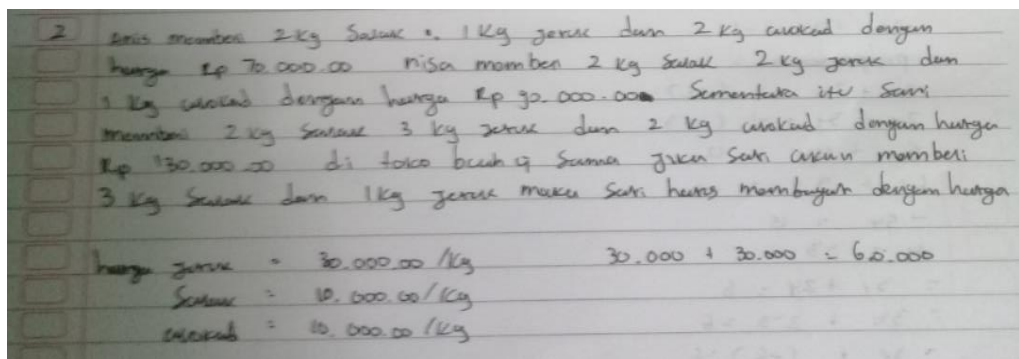 2 anis membeli 2 kg Salak, 1 kg jeruk dan 2 kg avokad dengan
harga Rp 70.000.00 nisa memberi 2 kg Salak 2 kg jeruk dan
1 kg avokad dengan harga Rp 90.000.00 Sementara itu Sari
membeli 2 kg Salak 3 kg jeruk dan 2 kg avokad dengan harga
Rp 130.000.00 di toko buah yg Sama jika Sari akan memberi
3 kg Salak dan 1 kg jeruk maka Sari harus membayar dengan harga
harga jeruk = 30.000.00 /kg 30.000 + 30.000 = 60.000
Salak = 10.000.00/kg
avokad = 10.000.00/kg